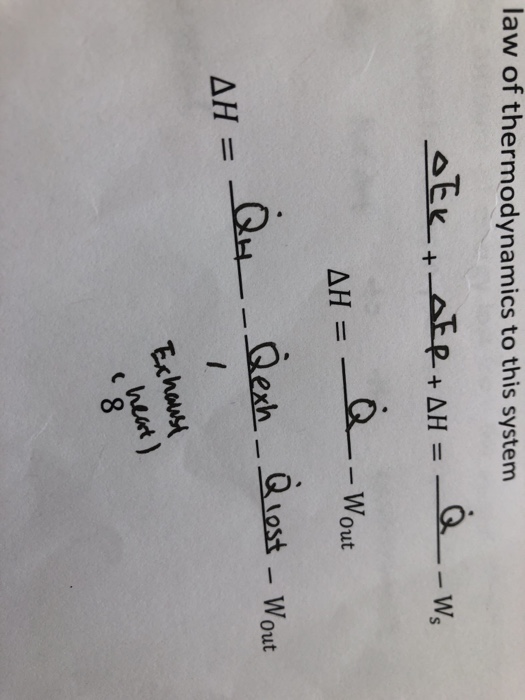 law of thermodynamics to this system
ΔEk + ΔEp + ΔH = Q̇ − Ws
ΔH = Q̇ − Wout
ΔH = Q̇H − Q̇exh − Q̇lost − Wout
Exhaust
( heat )
8